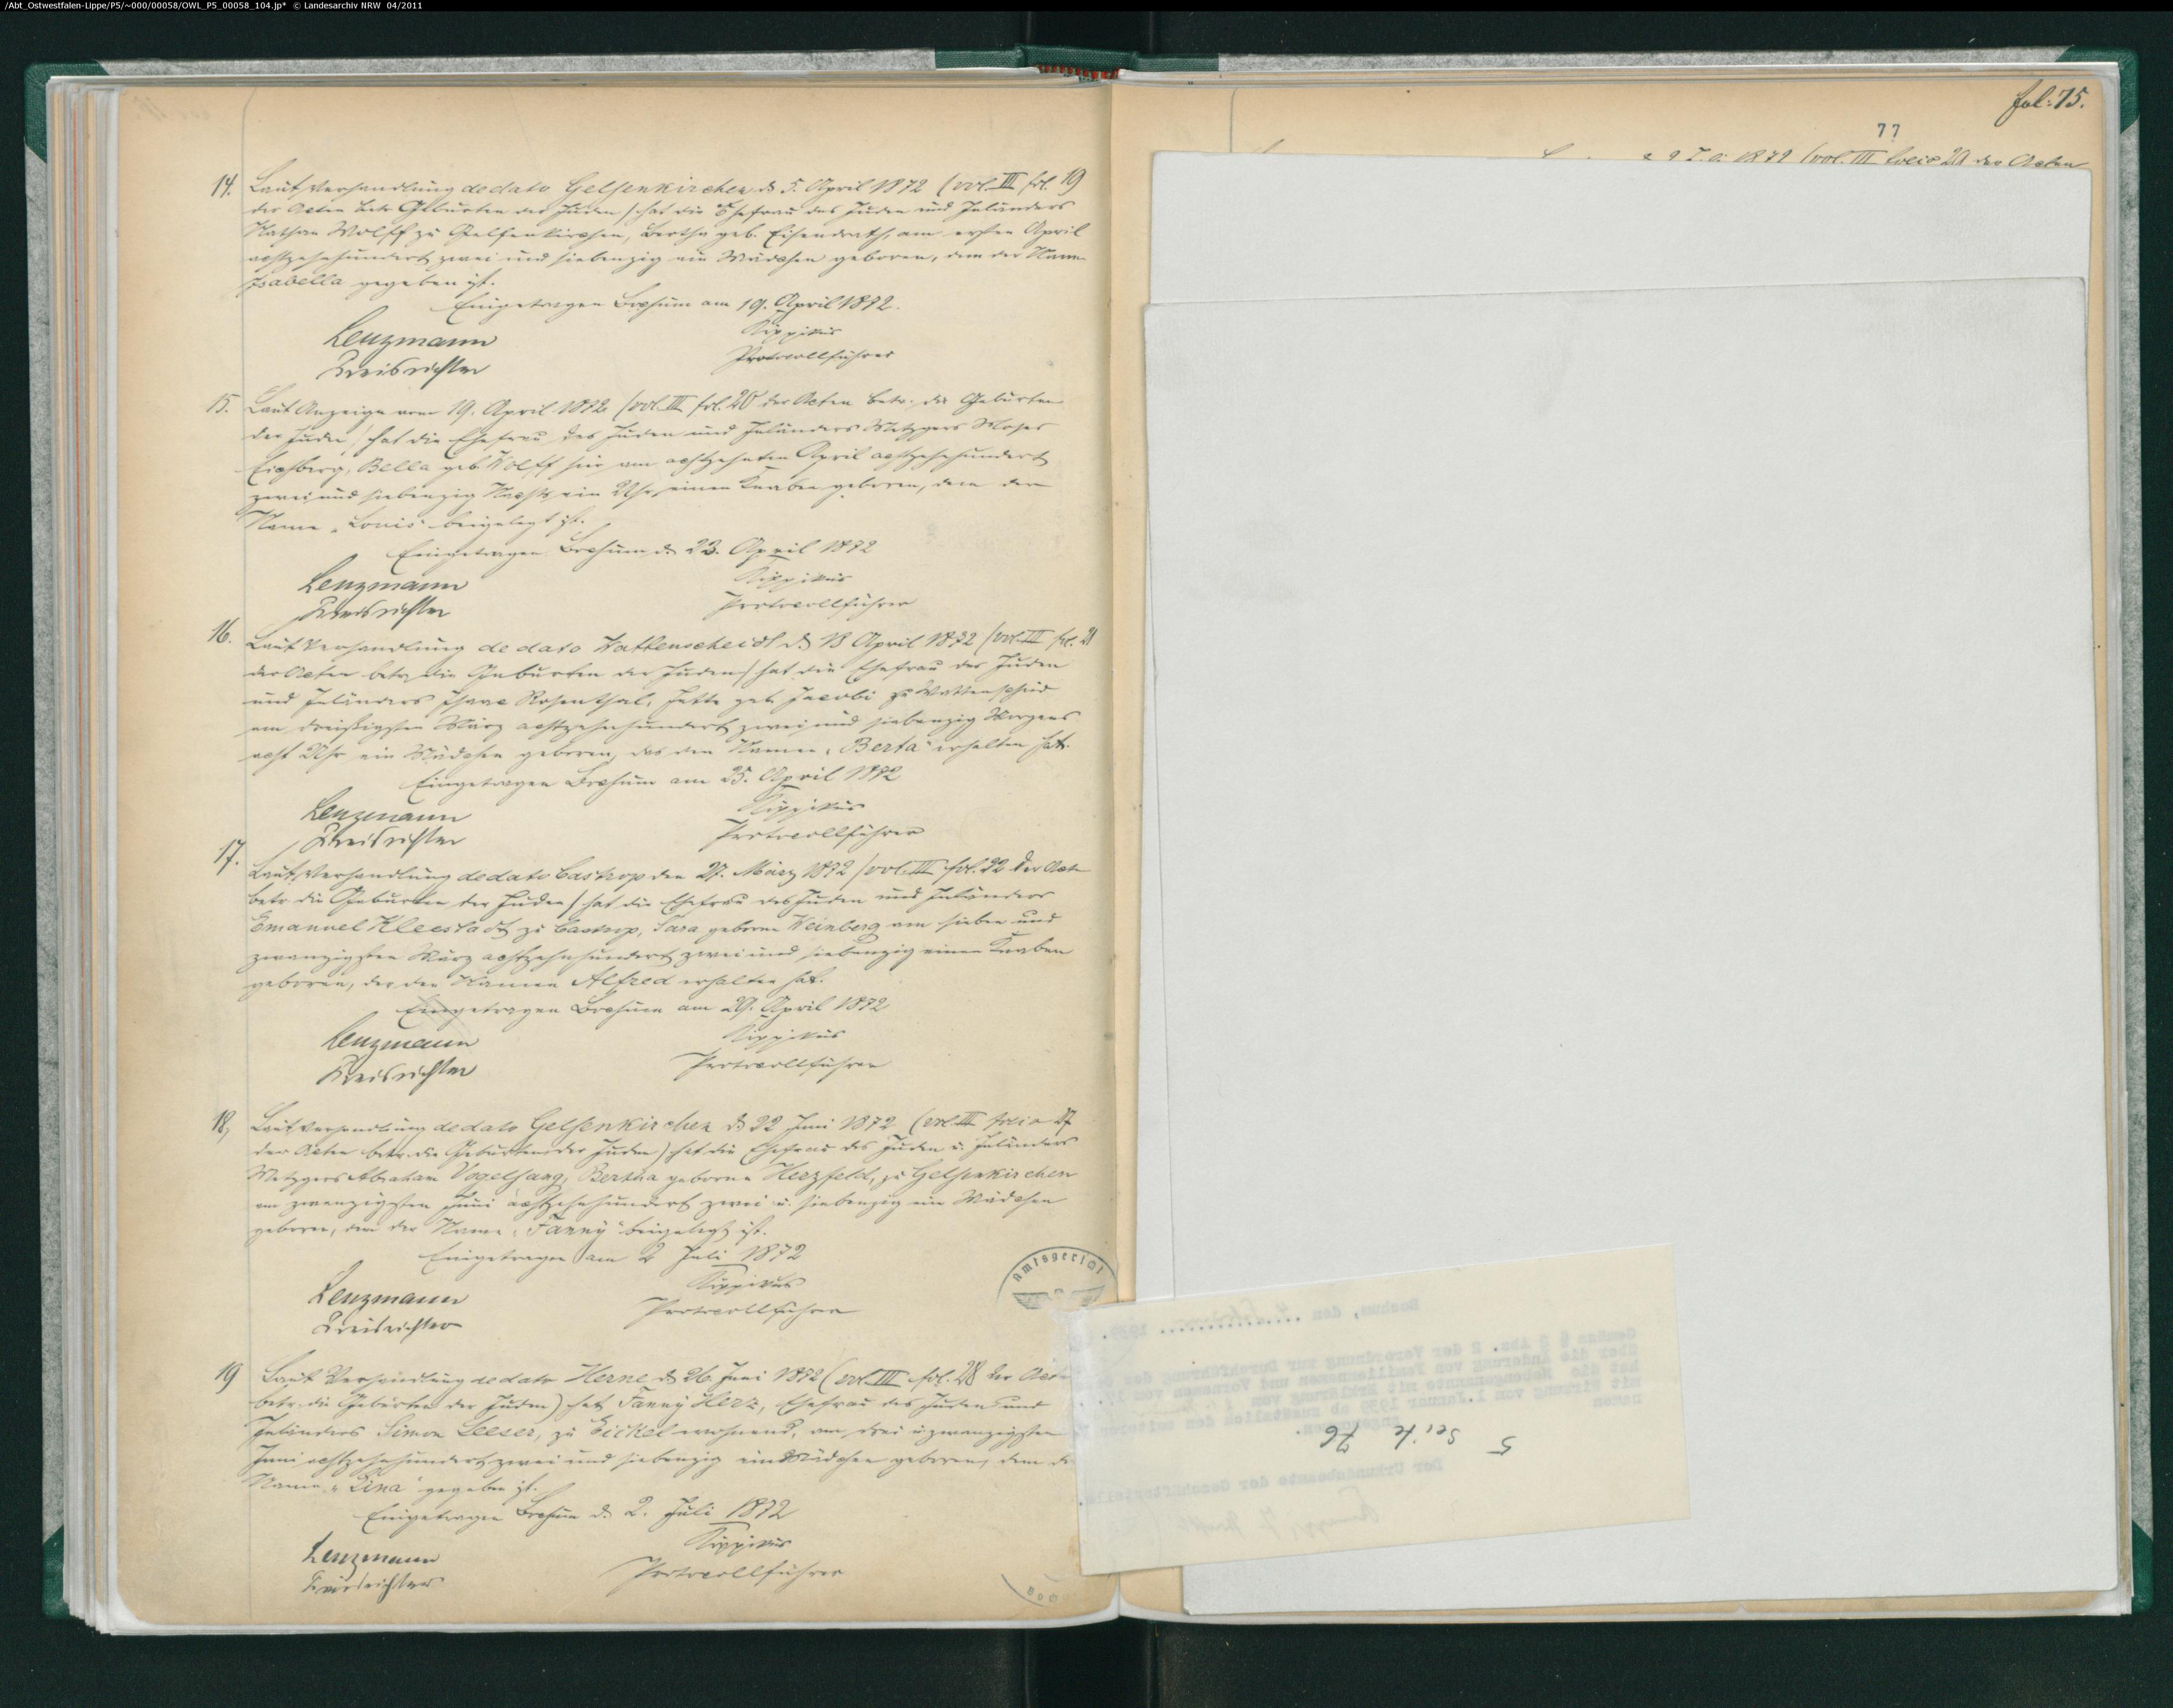 /Abt_Ostwestfalen-Lippe/P5/~000/00058/OWL_P5_00058_104.jp* © Landesarchiv NRW 04/2011
fol: 75.
77
1872 (vol. III folio 29 der Acten
14. Laut Verhandlung de dato Gelsenkirchen d. 5. April 1872 (vol. III fol. 19
der Acten betr. Geburten der Juden) hat die Ehefrau des Juden und Inländers
Nathan Wolff zu Gelsenkirchen, Bertha geb. Eisendrath, am ersten April
achtzehnhundert zwei und siebenzig ein Mädchen geboren, dem der Name
Isabella gegeben ist.
Eingetragen Bochum am 19. April 1872.
Lenzmann
Kreisrichter
Protocollführer
15. Laut Anzeige vom 19. April 1872 (vol. III fol. 20 der Acten betr. die Geburten
der Juden) hat die Ehefrau des Juden und Inländers Metzgers Moses
Eichberg, Bella geb. Wolff hier am achtzehnten April achtzehnhundert
zwei und siebenzig Nachts ein Uhr einen Knaben geboren, dem der
Name „Louis" beigelegt ist.
Eingetragen Bochum d. 23. April 1872
Lenzmann
Kreisrichter
Protocollführer
16. Laut Verhandlung de dato Wattenscheidt d. 18 April 1872 (vol. III fol. 21
der Acten betr. die Geburten der Juden) hat die Ehefrau des Juden
und Inländers Isaac Rosenthal, Jette geb. Jacobi zu Wattenscheid
am dreißigsten März achtzehnhundert zwei und siebenzig Morgens
acht Uhr ein Mädchen geboren, das den Namen „Berta" erhalten hat.
Eingetragen Bochum am 25. April 1872
Lenzmann
Kreisrichter
Protocollführer
17. Laut Verhandlung de dato Castrop den 27. März 1872 (vol. III fol. 22 der Acten
betr. die Geburten der Juden) hat die Ehefrau des Juden und Inländers
Emanuel Kleestadt zu Castrop, Sara geborne Weinberg am sieben und
zwanzigsten März achtzehnhundert zwei und siebenzig einen Knaben
geboren, der den Namen Alfred erhalten hat.
Eingetragen Bochum am 29. April 1872
Lenzmann
Kreisrichter
Protocollführer
18, Laut Verhandlung de dato Gelsenkirchen d. 22 Juni 1872 (vol. III folio 27
der Acten betr. die Geburten der Juden) hat die Ehefrau des Juden u. Inländers
Metzgers Abraham Vogelsang, Bertha geborne Herzfeld, zu Gelsenkirchen
am zwanzigsten Juni achtzehnhundert zwei u. siebenzig ein Mädchen
geboren, dem der Name „Fanny" beigelegt ist.
Eingetragen am 2 Juli 1872
Lenzmann
Kreisrichter
Protocollführer
Amtsgericht
19 Laut Verhandlung de dato Herne d. 26. Juni 1872 (vol. III fol. 28 der Acten
betr. die Geburten der Juden) hat Fanny Herz, Ehefrau des Juden und
Inländers Simon Leeser, zu Eickel wohnend, am drei u. zwanzigsten
Juni achtzehnhundert zwei und siebenzig ein Mädchen geboren, dem der
Name „Lina" gegeben ist.
Eingetragen Bochum d. 2. Juli 1872
Lenzmann
Kreisrichter
Protocollführer
Bochum, den
Der Urkundsbeamte der Geschäftsstelle.
5 Seite 76